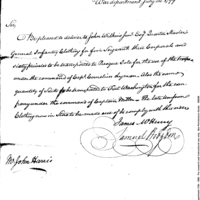 War department July 20 1799
Sir
Be pleased to deliver to John Wilkins Junr Esqr Quarter Master
General Infantry Clothing for four Sergeants three Corporals and
sixty privates to be transported to Presque Isle for the use of the troops
under the command of Capt Cornelius Lyman. Also the same
quantity of to be transported to Fort Washington for the com
pany under the command of Captain Miller. The late uniform
Clothing now in Store to be made use of to comply with this order
James McHenry
Samuel Hodgdon
Mr John Harris